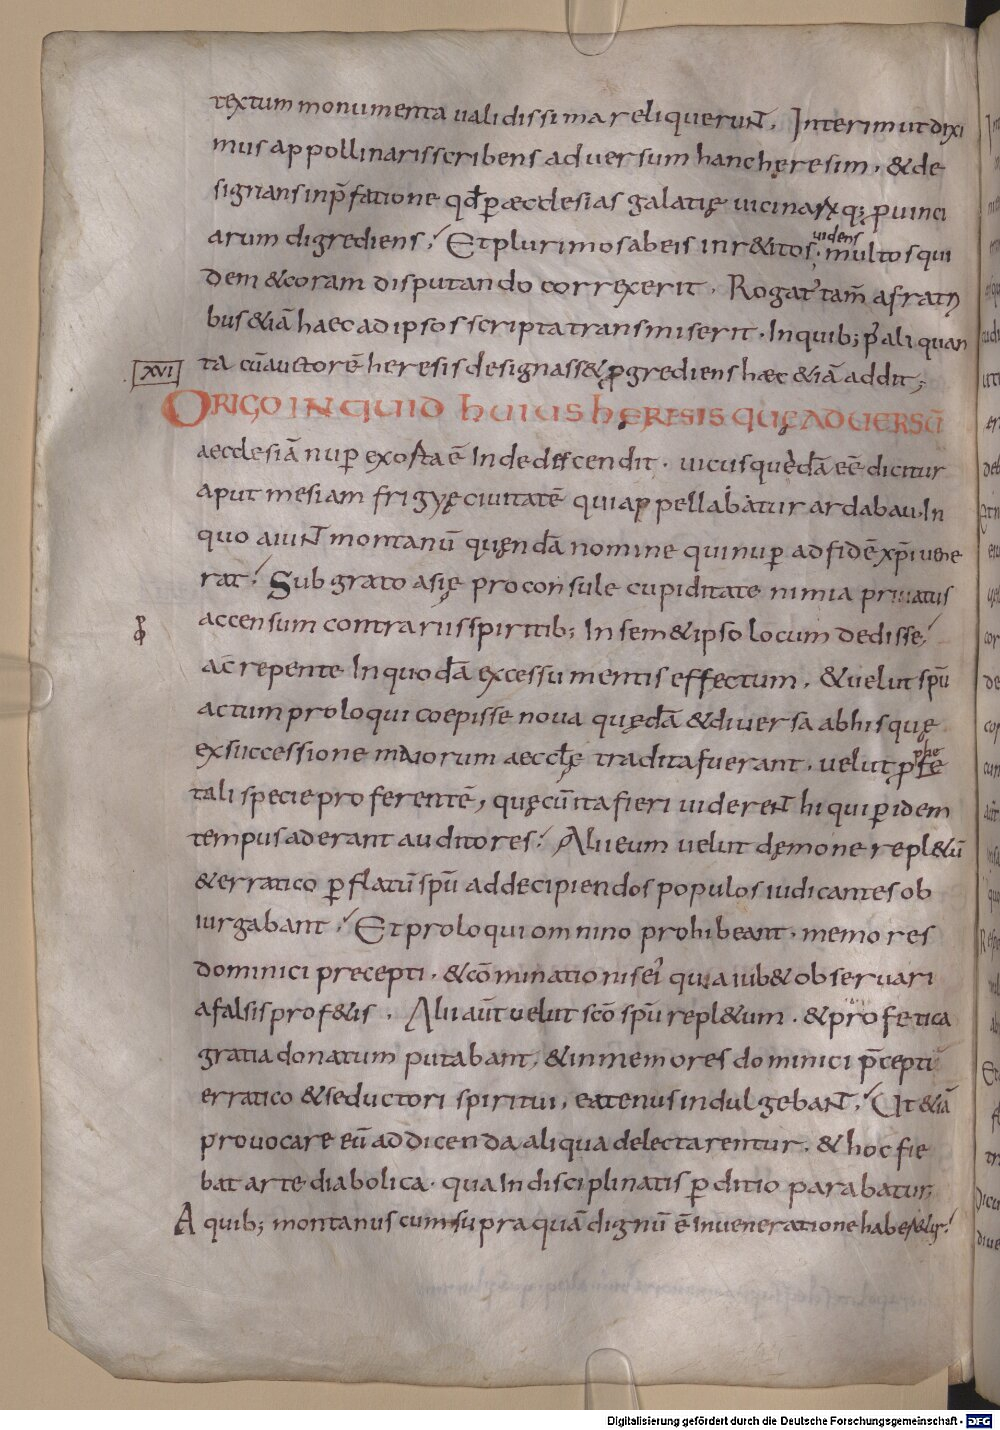 textum monumenta ualidissima reliquerunt. Interim ut dixi
mus appollinaris scribens aduersum hanc heresim. & de
signans in p̄fatione qđ ꝑ æcclesias galatię uicinarūq; ꝓuinci
arum digrediens; Et plurimos ab eis inr&itos. multos qui
uidens
dem & coram disputando correxerit. Rogat' tam̄ a fratri
bus &iā haec ad ipsos scripta transmiserit. In quib; p' aliquan
XVI
ta cū auctorē heresis designass& ꝓgrediens hæc &iā addit;
ORIGO INQUID HUIUS HERESIS QUE ADUERSŪ
aecclesiā nuꝑ exorta ē Inde descendit. uicus quèdā eē dicitur
aput mesiam frigyę ciuitatē qui appellabatur ardabau. In
quo aiunt montanū quęndā nomine qui nuꝑ ad fidē xp̄i uene
rat; Sub grato asię proconsule cupiditate nimia priuatus
accensum contrariis spiritib; In sem&ipso locum dedisse;
ac̄ repente In quodā excessu mentis effectum. & uelut spū
actum proloqui coepisse noua quędā & diuersa ab his quę
ex successione maiorum aecclę tradita fuerant. uelut ꝓfe
phe
tali specie proferentē, quę cū ita fieri uiderent hi qui ꝑ idem
tempus aderant auditores; Alii eum uelut dęmone repl&ū
& erratico ꝑflatū spū ad decipiendos populos iudicantes ob
iurgabant; Et proloqui omnino prohibeant. memores
dominici precepti. & cōminationis ei' quia iub& obseruari
a falsis prof&is. Alii aūt uelut scō spū repl&um. & profetica
gratia donatum putabant, & inmemores dominici p̄cepti
erratico & seductori spiritui, eatenus indulgebant; Ut &iā
prouocare eū ad dicenda aliqua delectarentur. & hoc fie
bat arte diabolica. qua Indisciplinatis ꝑditio parabatur;
A quib; montanus cum supra quā dignū ē In ueneratione haber&ur;
Digitalisierung gefördert durch die Deutsche Forschungsgemeinschaft - DFG